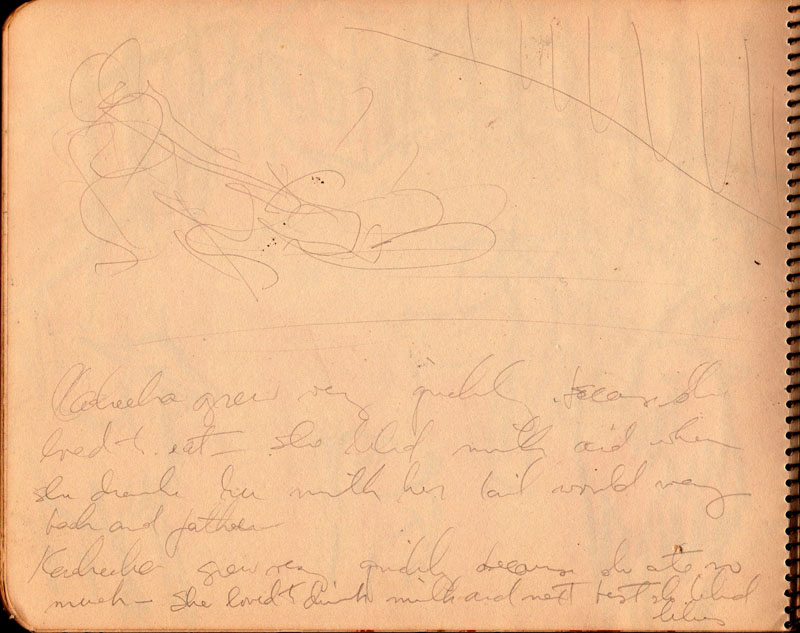 grew very quickly because she
loved to eat — she liked milk and when
she drank her milk her tail would wag
back and
grew very quickly because she ate so
much — she loved to drink milk and next best she liked